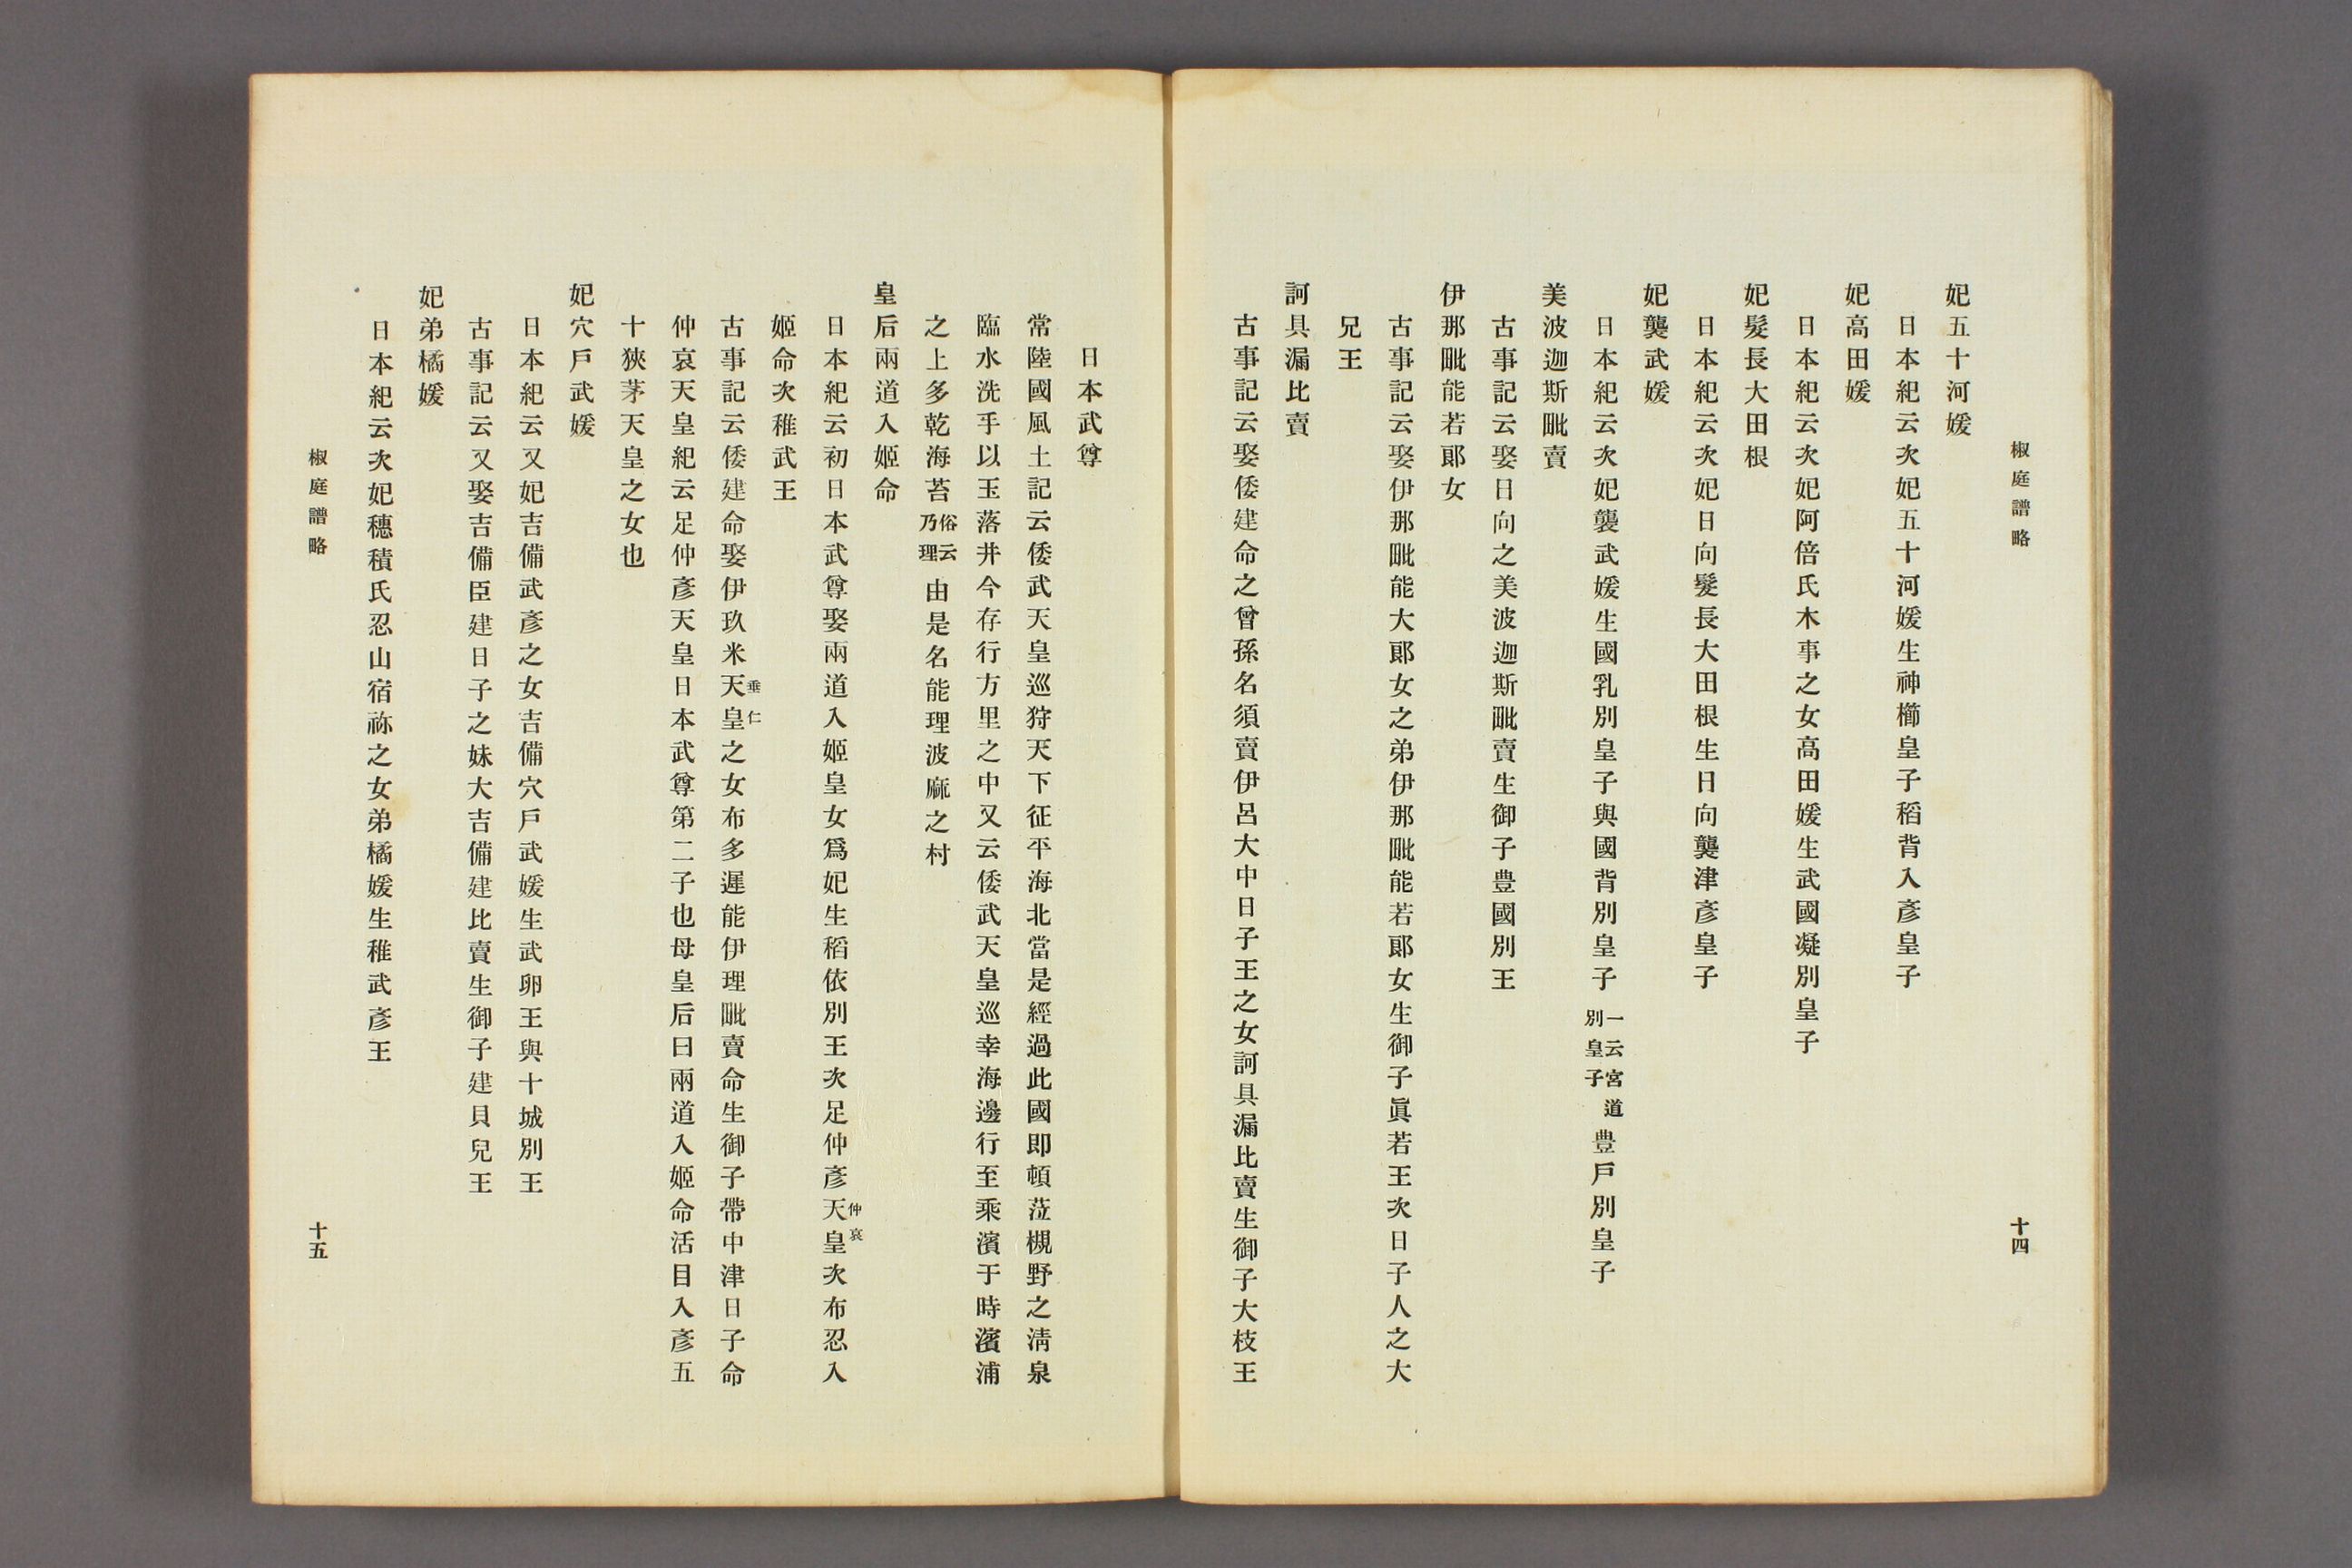 椒庭譜略
十四
妃五十河媛
日本紀云次妃五十河媛生神櫛皇子稻背入彥皇子
妃高田媛
日本紀云次妃阿倍氏木事之女高田媛生武國凝別皇子
妃髮長大田根
日本紀云次妃日向髮長大田根生日向襲津彥皇子
妃襲武媛
日本紀云次妃襲武媛生國乳別皇子與國背別皇子一云宮道別皇子豊戶別皇子
美波迦斯毗賣
古事記云娶日向之美波迦斯毗賣生御子豊國別王
伊那毗能若郞女
古事記云娶伊那毗能大郞女之弟伊那毗能若郞女生御子眞若王次日子人之大
兄王
訶具漏比賣
古事記云娶倭建命之曾孫名須賣伊呂大中日子王之女訶具漏比賣生御子大枝王
日本武尊
常陸國風土記云倭武天皇巡狩天下征平海北當是經過此國即頓蒞槻野之淸泉
臨水洗手以玉落井今存行方里之中又云倭武天皇巡幸海邊行至乘濱于時濱浦
之上多乾海苔俗云乃理由是名能理波麻之村
皇后兩道入姬命
日本紀云初日本武尊娶兩道入姬皇女爲妃生稻依別王次足仲彥天皇仲哀次布忍入
姬命次稚武王
古事記云倭建命娶伊玖米天皇垂仁之女布多遲能伊理毗賣命生御子帶中津日子命
仲哀天皇紀云足仲彥天皇日本武尊第二子也母皇后曰兩道入姬命活目入彥五
十狹茅天皇之女也
妃穴戶武媛
日本紀云又妃吉備武彥之女吉備穴戶武媛生武卵王與十城別王
古事記云又娶吉備臣建日子之妹大吉備建比賣生御子建貝兒王
妃弟橘媛
日本紀云次妃穗積氏忍山宿祢之女弟橘媛生稚武彥王
椒庭譜略
十五